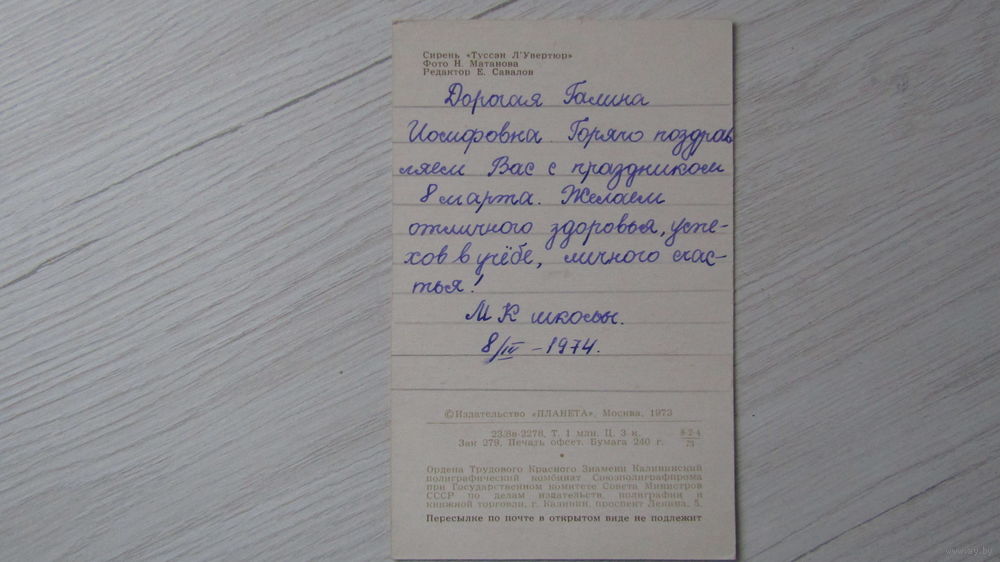 Сирень «Туссэн Л'Увертюр»
Фото Н. Матанова
Редактор Е. Савалов
Дорогая Галина
Иосифовна. Горячо поздрав
ляем Вас с праздником
8 марта. Желаем
отличного здоровья, успе-
хов в учёбе, личного счас-
тья!
МК школы.
8/IV – 1974.
© Издательство «ПЛАНЕТА», Москва, 1973
23/8в-2278, Т. 1 млн. Ц. 3 к.
8-2-4
73
Зак 279. Печать офсет. Бумага 240 г.
Ордена Трудового Красного Знамени Калининский
полиграфический комбинат Союзполиграфпрома
при Государственном комитете Совета Министров
СССР по делам издательств, полиграфии и
книжной торговли. г. Калинин, проспект Ленина, 5.
Пересылке по почте в открытом виде не подлежит
www.ay.by